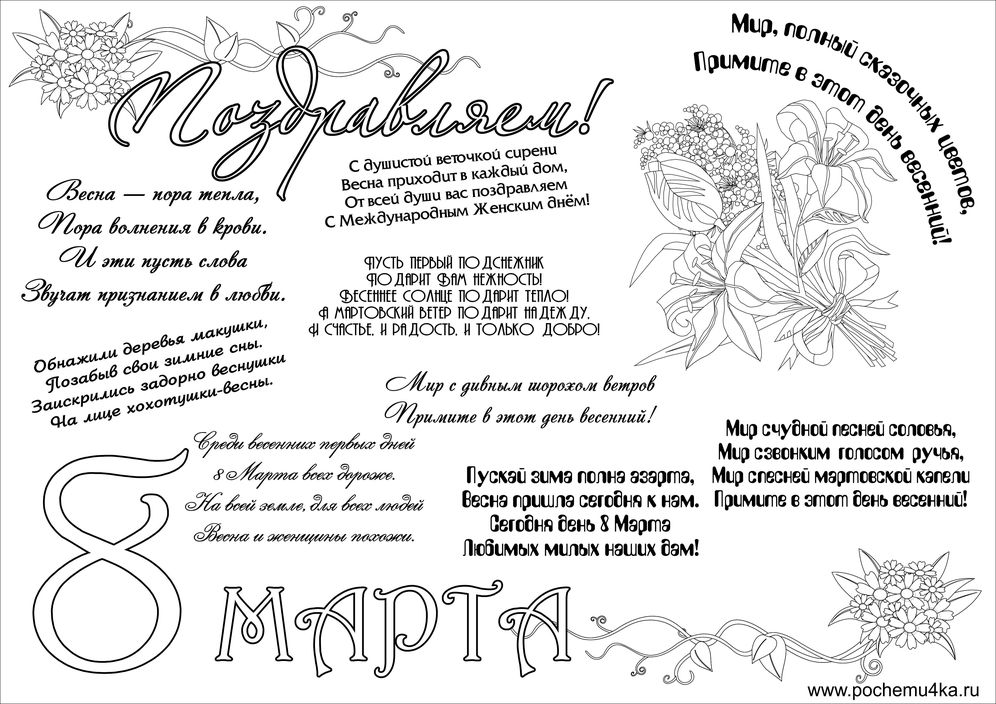 Поздравляем!
Мир, полный сказочных цветов,
Примите в этот день весенний!
С душистой веточкой сирени
Весна приходит в каждый дом,
От всей души вас поздравляем
С Международным Женским днём!
Весна — пора тепла,
Пора волнения в крови.
И эти пусть слова
Звучат признанием в любви.
Пусть первый подснежник
Подарит Вам нежность!
Весеннее солнце подарит тепло!
А мартовский ветер подарит надежду,
И счастье, и радость, и только добро!
Обнажили деревья макушки,
Позабыв свои зимние сны.
Заискрились задорно веснушки
На лице хохотушки-весны.
Мир с дивным шорохом ветров
Примите в этот день весенний!
Среди весенних первых дней
8 Марта всех дороже.
На всей земле, для всех людей
Весна и женщины похожи.
Пускай зима полна азарта,
Весна пришла сегодня к нам.
Сегодня день 8 Марта
Любимых милых наших дам!
Мир счудной песней соловья,
Мир сзвонким голосом ручья,
Мир спесней мартовской капели
Примите в этот день весенний!
8 МАРТА
www.pochemu4ka.ru